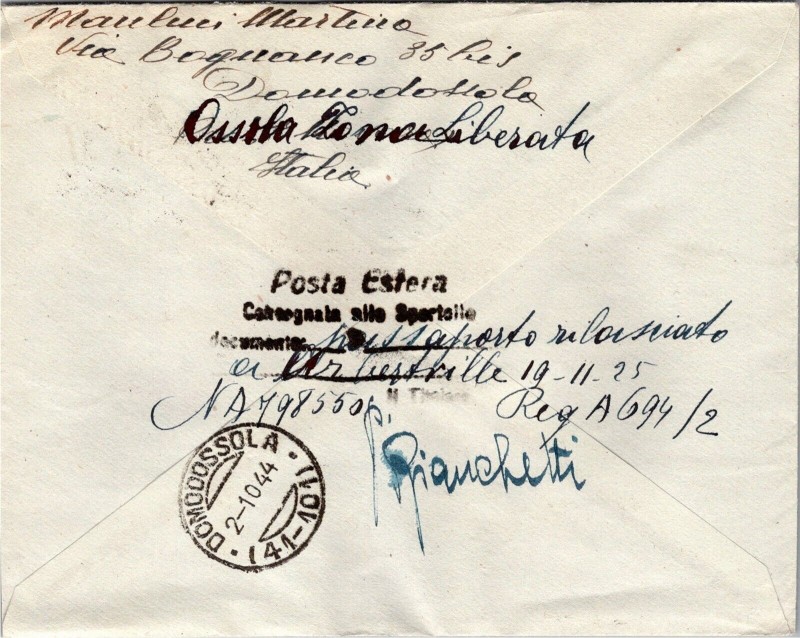 Manluci Martino
Via Bognanco 35 bis
Domodossola
Ossola Zona Liberata
Italia
Posta Estera
Consegnata allo Sportello
documento: passaporto rilasciato
a Albertville 19-11-25
NA798550 Reg A 694/2
Il Titolare
Bianchetti
DOMODOSSOLA · (NOVARA)
2-10 44